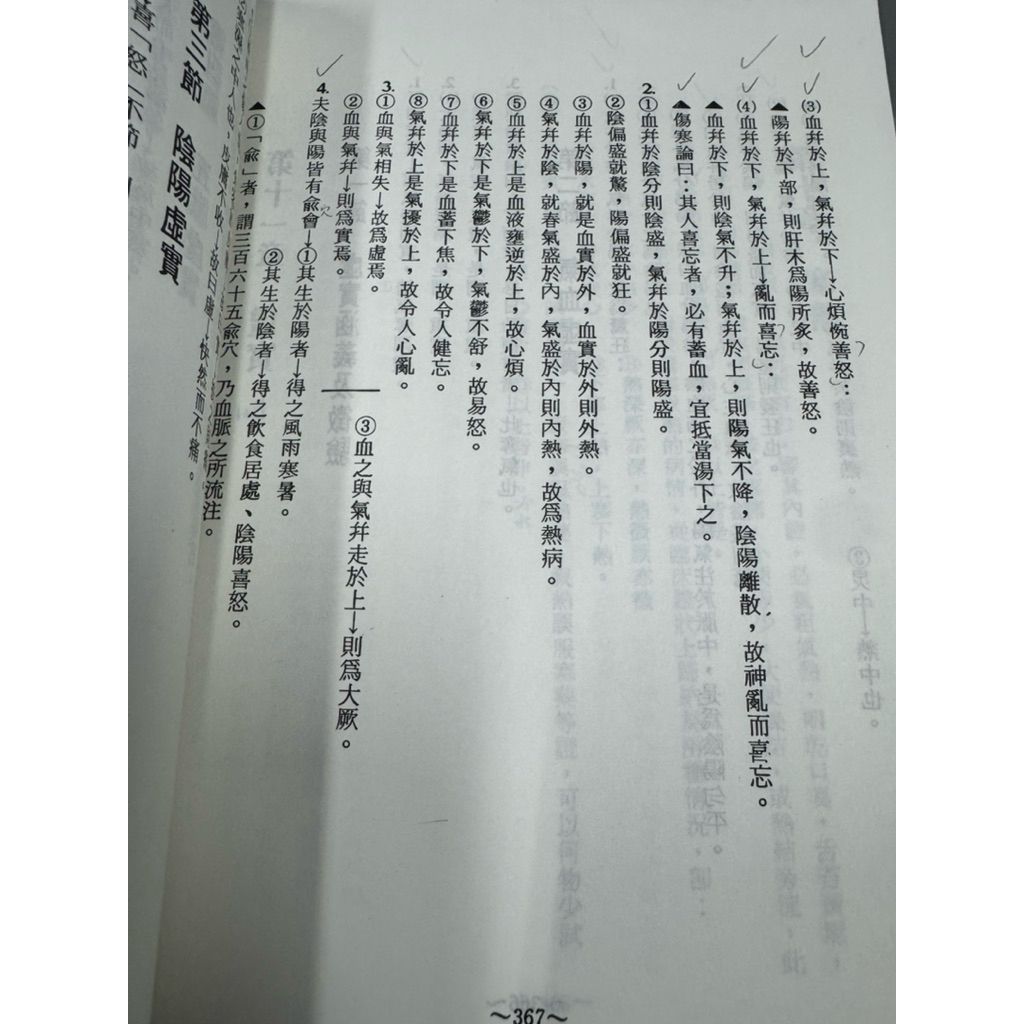 ⑶血幷於上，氣幷於下→心煩惋善怒：
▲陽幷於下部，則肝木爲陽所炙，故善怒。
⑷血幷於下，氣幷於上→亂而喜忘：
▲血幷於下，則陰氣不升；氣幷於上，則陽氣不降，陰陽離散，故神亂而喜忘。
▲傷寒論曰：其人喜忘者，必有蓄血，宜抵當湯下之。
2.①血幷於陰分則陰盛，氣幷於陽分則陽盛。
②陰偏盛就驚，陽偏盛就狂。
③血幷於陽，就是血實於外，血實於外則外熱。
④氣幷於陰，就春氣盛於內，氣盛於內則內熱，故爲熱病。
⑤血幷於上是血液壅逆於上，故心煩。
⑥氣幷於下是氣鬱於下，氣鬱不舒，故易怒。
⑦血幷於下是血蓄下焦，故令人健忘。
⑧氣幷於上是氣擾於上，故令人心亂。
3.①血與氣相失→故爲虛焉。
②血與氣幷→則爲實焉。
③血之與氣幷走於上→則爲大厥。
4.夫陰與陽皆有兪會→①其生於陽者→得之風雨寒暑。
穴
②其生於陰者→得之飲食居處、陰陽喜怒。
▲①「兪」者，謂三百六十五兪穴，乃血脈之所流注。
第三節　陰陽虛實
～367～